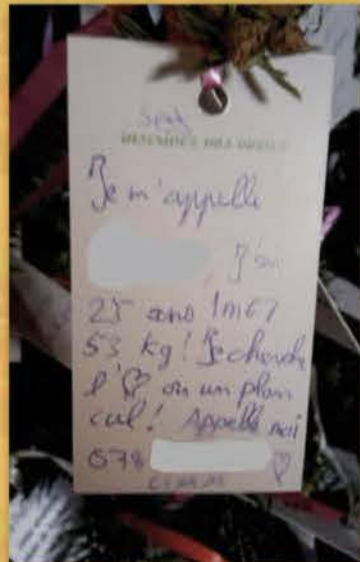 Je m'appelle
J'ai
25 ans 1m67
53 kg! Je cherche
l'♡ ou un plan
cul! Appelle moi
078